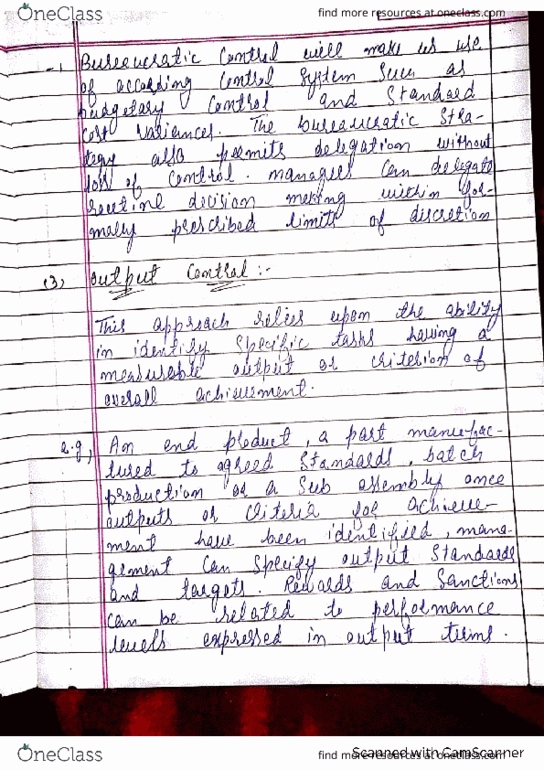 OneClass
find more resources at oneclass.com
-, Bureaucratic Control will make us use
of according Control System Such as
budgetary Control and Standard
Cost Variances. The bureaucratic Stra-
tegy also permits delegation without
loss of Control. managers Can delegate
routine decision making within for-
mally prescribed limits of discretion
(3) Output Control :-
This approach relies upon the ability
in identify Specific tasks having a
measurable output or criterion of
overall achievement.
e.g, An end product, a part manu-fac-
tured to agreed Standards, batch
production or a Sub assembly once
outputs or Criteria for achieve-
ment have been identified, mana-
gement Can Specify output Standards
and targets. Rewards and Sanctions
can be related to performance
levels expressed in output terms.
OneClass
find more resources at oneclass.com
Scanned with CamScanner